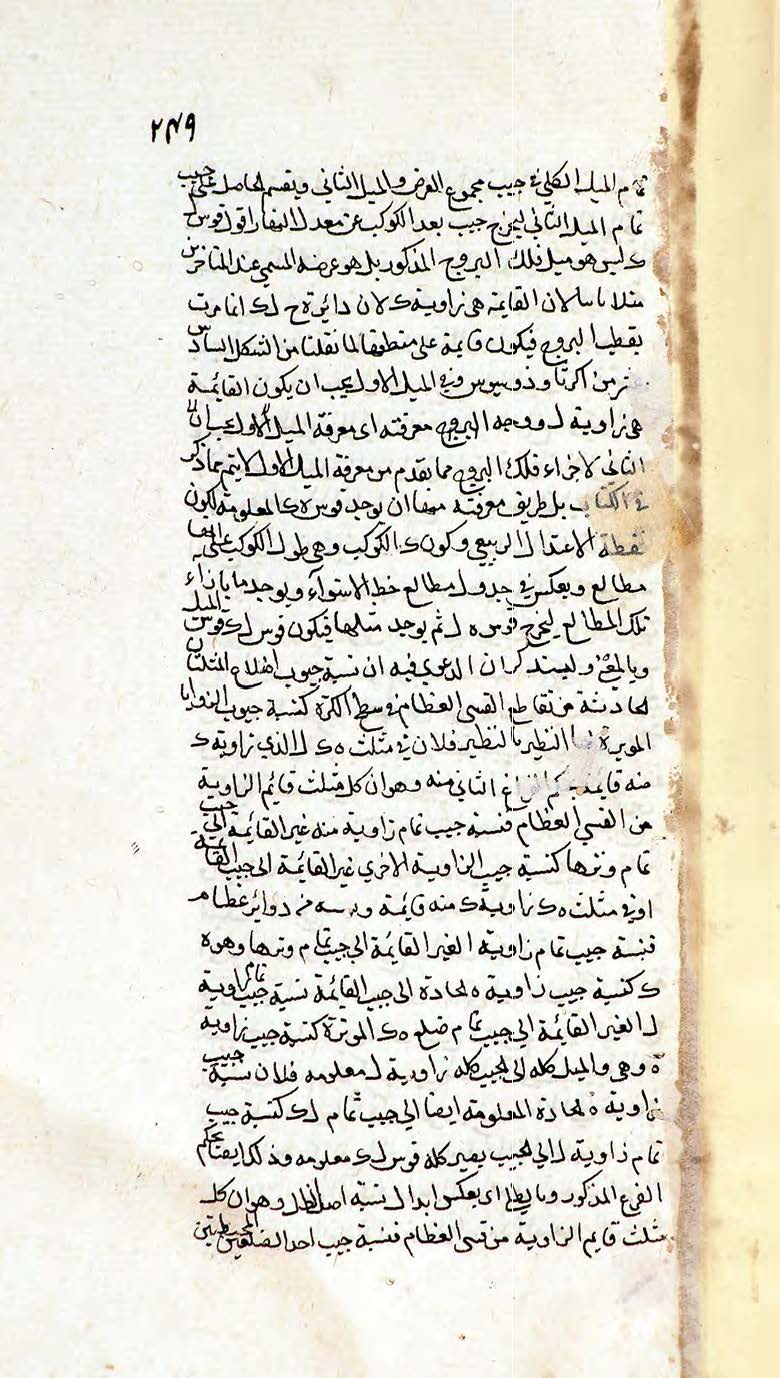 ٢٤٩
تمام الميل الكلي في جيب مجموع العرض والميل الثاني ويقسم الحاصل على جيب
تمام الميل الثاني ليخرج جيب بعد الكوكب عن معدل النهار اقول قوس
ك ليس هو ميل فلك البروج المذكور بل هو عرضه المسمى عند المتاخرين
لان القايمة هي زاوية ك لان دائرة ح ل ك انما مرت
بقطب البروج فيكون قايمة على منطقتها لما نقلنا من الشكل السادس
عشر من اكرثاوذوسيوس وفي الميل الاول يجب ان يكون القائمة
هي زاوية ل ووجه معرفته اى معرفة الميل الاول
الثاني لاجزاء فلك البروج مما تقدم من معرفة الميل الاول لا يتم بما ذكر
في الكتاب بل طريق معرفته منها ان يوجد قوس ه ك المعلومة لكون ه
نقطة الاعتدال الربيعي وكون ك الكوكب وهي طول الكوكب على انها
مطالع ويعكس في جدول مطالع خط الاستوآء ويوجد ما بازاء
تلك المطالع ليخرج قوس ه ل ثم يوجد ميلها فيكون قوس ل ك قوس الميل
وليستدكر ان الدعوى فيه ان نسبة جيوب اضلاع المثلثات
الحادثة من تقاطع القسى العظام في سطح الكرة كنسبة جيوب الزوايا
الموترة بها النظير بالنظير فلان في مثلث ه ك ل الذي زاوية ك
منه قايمة بحكم الفرع الثاني منه وهو ان كل مثلث قايم الزاوية
من القسي العظام فنسبة جيب تمام زاوية منه غير القائمة الى جيب
تمام وترها كنسبة جيب الزاوية الاخرى غير القائمة الى جيب القائمة
او في مثلث ه ك زاوية ك منه قائمة من دوائر عظام
فنسبة جيب تمام زاوية الغير القائمة الى جيب تمام وترها وهو ه
ك كنسبة جيب زاوية ه الحادة الى جيب القائمة نسبة جيب تمام زاوية
ل الغير القائمة الى جيب تمام ضلع ه ك الموترة كنسبة جيب زاوية
ه وهي والميل كله الى الجيب كله زاوية ل معلومه فلان نسبة جيب
زاوية ه الحادة المعلومة ايضا الى جيب تمام ل ك كنسبة جيب
تمام زاوية ل الى الجيب يصير كله قوس ل ك معلومه وذلك ايضا بحكم
الفرع المذكور وبالظلي اى بعكس ابدال نسبة اصل الظل وهو ان كل
مثلث قايم الزاوية من قسى العظام فنسبة جيب احد الضلعين المحيطتين